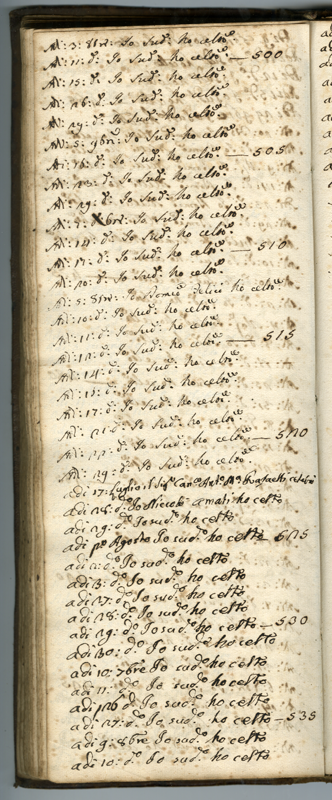 Adì: 3: 8bre: Io Sudo: ho celto
Adì: 11: do: Io Sudo: ho celto — 500
Adì: 15: do: Io Sudo: ho celto
Adì: 26: do: Io Sudo: ho celto
Adì: 29: do: Io Sudo: ho celto
Adì: 5: 9bre: Io Sudo: ho celto
Adì: 16: do: Io Sudo: ho celto — 505
Adì: 22: do: Io Sudo: ho celto
Adì: 29: do: Io Sudo: ho celto
Adì: 7: Xbre: Io Sudo: ho celto
Adì: 14: do: Io Sudo: ho celto
Adì: 17: do: Io Sudo: ho celto — 510
Adì: 20: do: Io Sudo: ho celto
Adì: 5: 8bre: Io ho celto
Adì: 10: do: Io Sudo: ho celto
Adì: 11: do: Io Sudo: ho celto
Adì: 12: do: Io Sudo: ho celto — 515
Adì: 14: do: Io Sudo: ho celto
Adì: 15: do: Io Sudo: ho celto
Adì: 17: do: Io Sudo: ho celto
Adì: 21: do: Io Sudo: ho celto
Adì: 22: do: Io Sudo: ho celto — 520
Adì: 29: do: Io Sudo: ho celto
adi 17: Luglio
adi 28: do: Io Nicolò Amati ho celto
adi 29: do: Io sudo ho celto
adi po Agosto Io sudo: ho celto — 525
adi 2: do: Io sudo: ho celto
adi 3: do: Io sudo: ho celto
adi 27: do: Io sudo: ho celto
adi 28: do: Io sudo: ho celto
adi 29: do: Io sudo: ho celto — 530
adi 30: do: Io sudo: ho celto
adi 10: 7bre Io sudo: ho celto
adi 11: do: Io sudo: ho celto
adi 26 do Io sudo: ho celto
adi 27: do: Io sudo: ho celto — 535
adi 9: 8bre Io sudo: ho celto
adi 10: do: Io sudo: ho celto